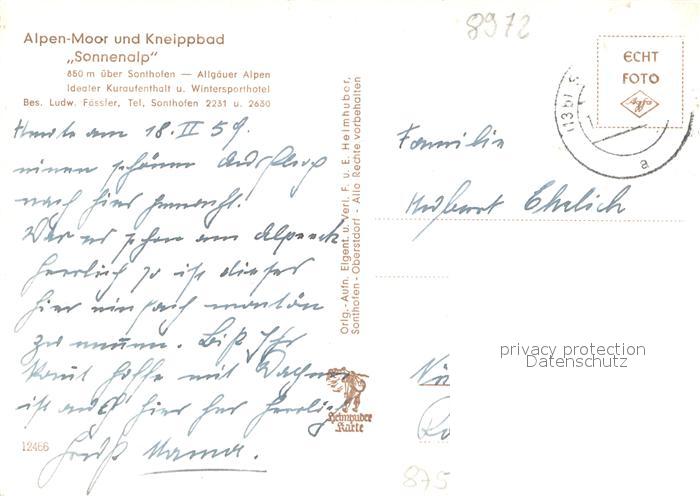 8972
Alpen-Moor und Kneippbad
„Sonnenalp“
850 m über Sonthofen — Allgäuer Alpen
Idealer Kuraufenthalt u. Wintersporthotel
Bes. Ludw. Fässler, Tel. Sonthofen 2231 u. 2630
ECHT
FOTO
Agfa
(13b)
a
Heute am 18. II 59.
einen schönen Ausflug
nach hier gemacht.
War es schon am Alpeneck
herrlich so ist dieses
hier einfach
zu nennen. Bis Ihr
kommt hoffe mit
ist auch hier her herrlich
Gruß Mama.
Orig.-Aufn. Eigent. u. Verl. F. u. E. Heimhuber,
Sonthofen - Oberstdorf - Alle Rechte vorbehalten
Heimhuber
Karte
Familie
Hubert Ehrlich
privacy protection
Datenschutz
12466
875